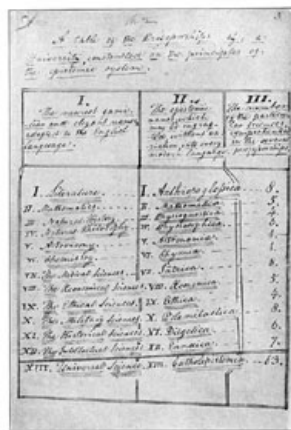 A table of the Professorships of a
University constructed on the principles of
the epistemic system.
I.
The nearest familiar and elegant names
adapted to the English
language.
II.
The epistemic
names, which
may be engrafted, without variation, into every
modern language.
III.
The number
of the particular sciences,
comprehended
in the several
professorships.
I. Literature. I. Anthropoglossica. 8.
II. Mathematics. II. Mathematica. 5.
III. Natural History. III. Physiognostica.
IV. Natural Philosophy. IV. Physiosophica.
V. Astronomy. V. Astronomia. 1.
VI. Chemistry. VI. Chymia.
VII. The Medical Sciences. VII. Iatrica.
VIII. The Economical Sciences. VIII. Œconomica.
IX. The Ethical Sciences. IX. Ethica.
X. The Military Sciences. X. Polemitactica.
XI. The Historical Sciences. XI. Diegetica. 6.
XII. The Intellectual Sciences. XII. Ennœica. 7.
XIII. Universal Science. XIII. Catholepistemia. 63.